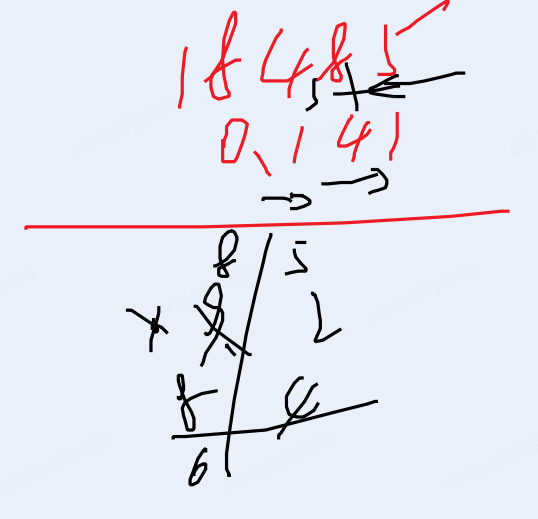 18485
5
0,141
8 5
× 9 2
8 4
6